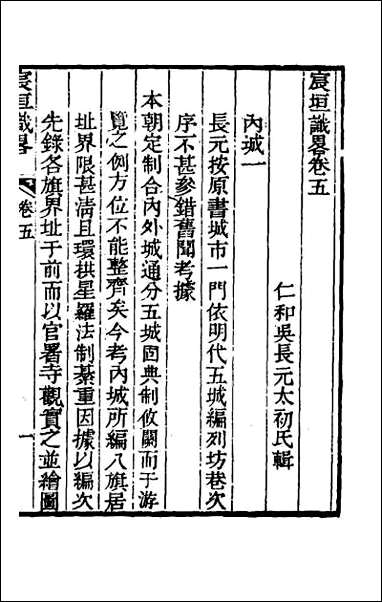 宸垣識畧卷五
仁和吳長元太初氏輯
內城一
長元按原書城市一門依明代五城編列坊巷次
序不甚參錯舊聞考據
本朝定制合內外城通分五城固典制攸關而于游
覽之例方位不能整齊矣今考內城所編八旗居
址界限甚清且環拱星羅法制綦重因據以編次
先錄各旗界址于前而以官署寺觀實之並繪圖
宸垣識畧
卷五
一